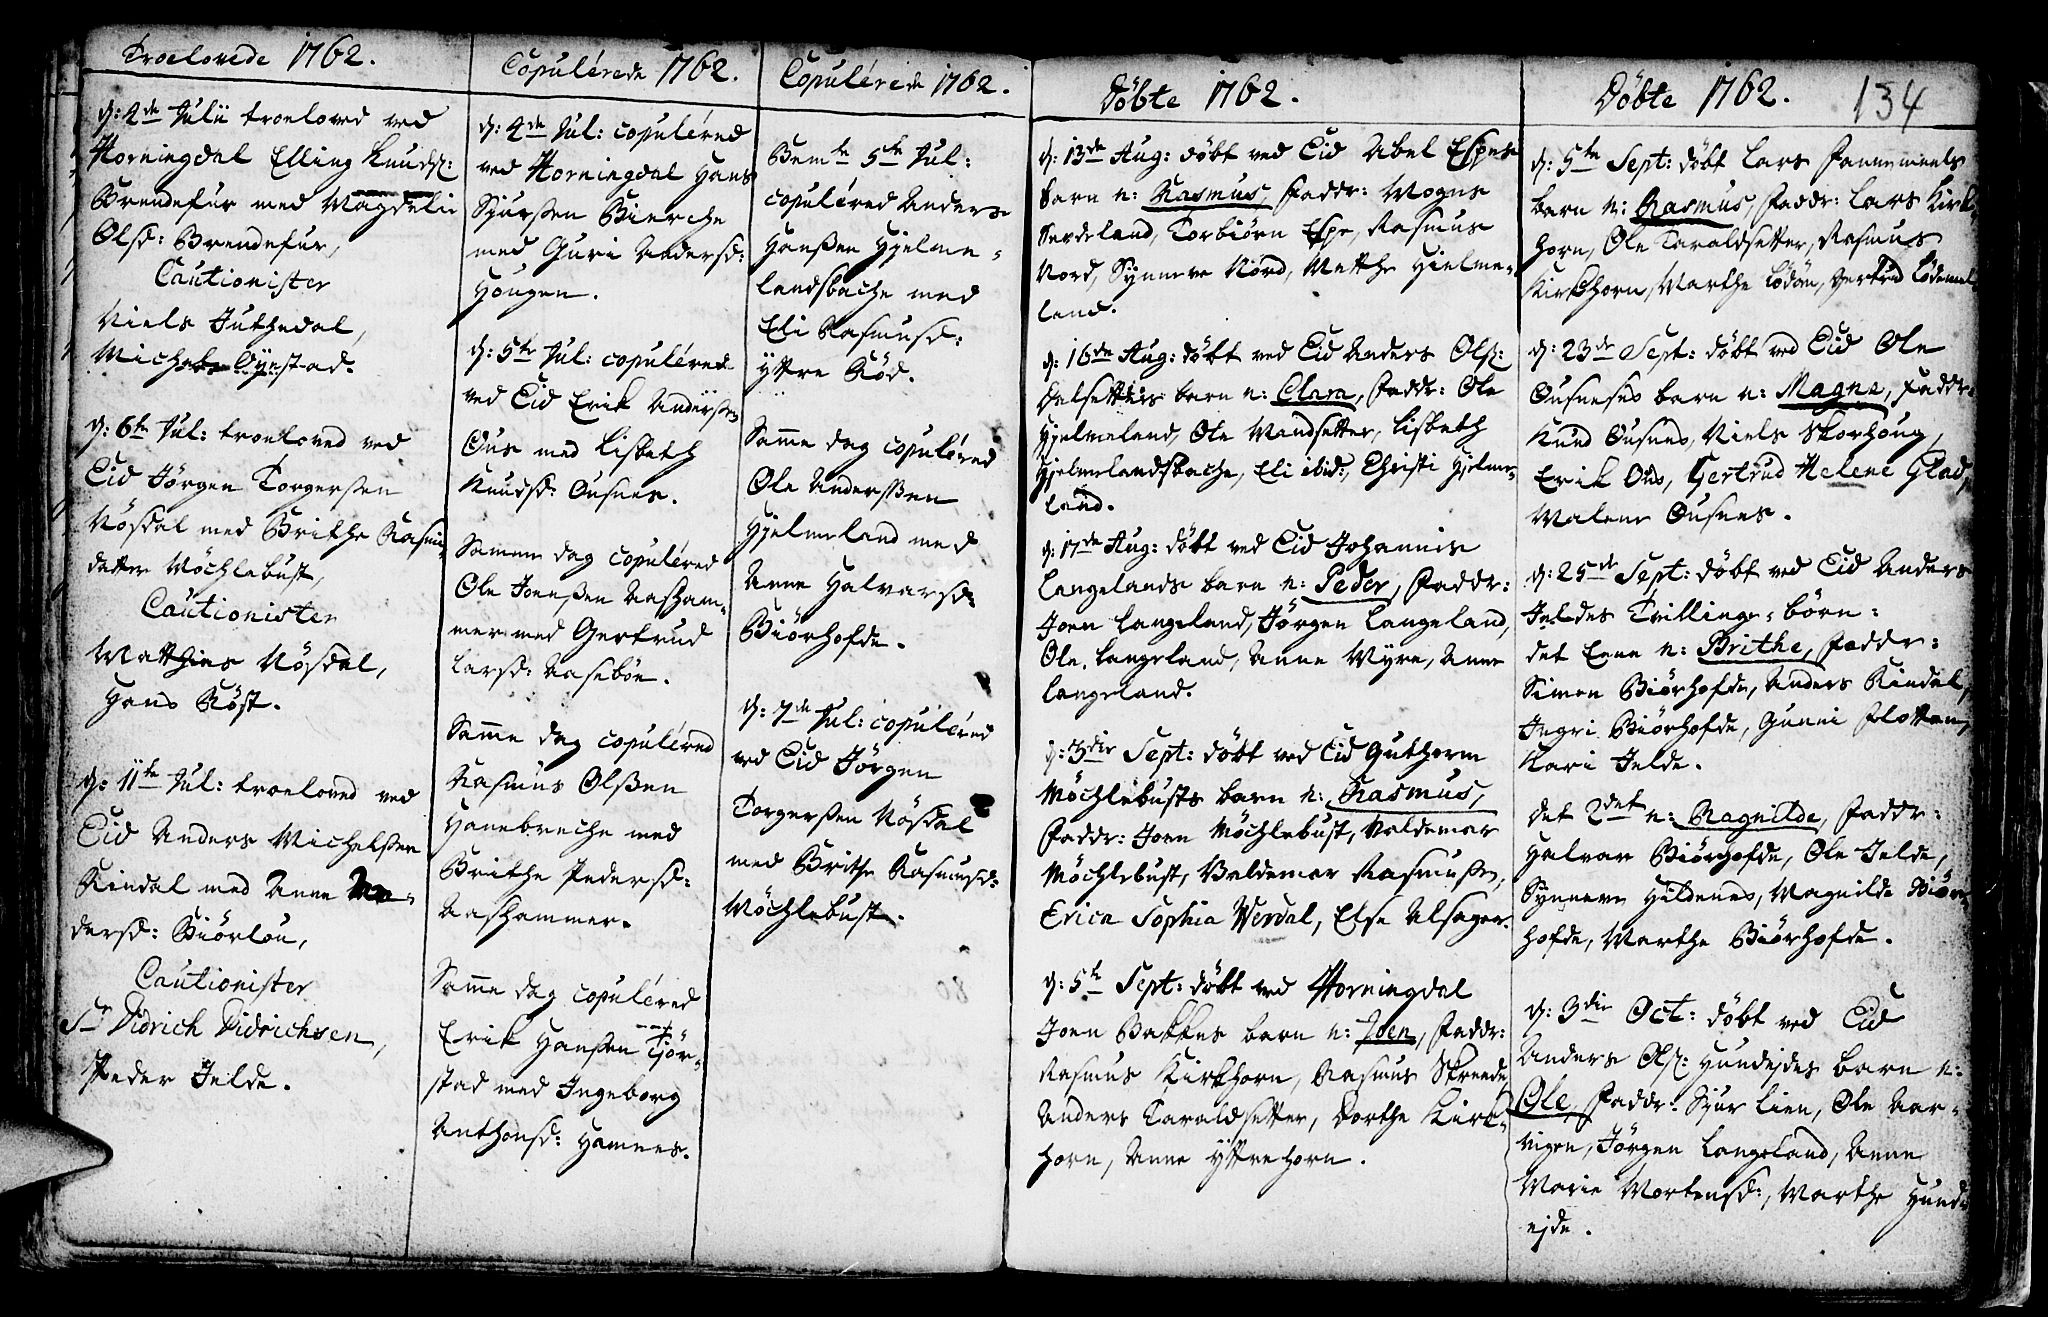 Troelovede 1762.
d: 4de Julii troeloved ved
Horningdal Elling Knuds:
Brendefur med Magdeli
Olsd: Brendefur,
Cautionister
Niels Juthedal,
Michel Öyestad.
d: 6te Jul: troeloved ved
Eid Jörgen Torgerssen
Nösdal med Brithe Rasmi-
datter Möchlebust,
Cautionister
Matthias Nösdal,
Hans Röst.
d: 11te Jul: troeloved ved
Eid Anders Michelssen
Rindal med Anne An-
dersd: Biörlou,
Cautionister
Sr Didrich Didrichsen,
Peder Jelde.
Copulérede 1762.
d: 4de Jul: copuléred
ved Horningdal Hans
Sjurssen Bierche
med Guri Andersd:
Hougen.
d: 5te Jul: copulérede
ved Eid Erik Anderssen
Ous med Lisbeth
Knudsd: Ousnes.
Samme dag copuléred
Ole Joenssen Aasham-
mer med Gertrud
Larsd: Aaseböe.
Samme dag copuléred
Rasmus Olssen
Hanebreche med
Brithe Pedersd:
Aashammer.
Samme dag copuléred
Erik Hanssen Tjör-
stad med Ingeborg
Anthonsd: Hamnes.
Copulérede 1762.
Bemte 5te Jul:
copuléred Anders
Hanssen Hjelme-
landsbache med
Eli Rasmusd:
Yttre Röd.
Samme dag copuléred
Ole Anderssen
Hjelmeland med
Anne Halvarsd:
Biörhofde.
d: 7de Jul: copuléred
ved Eid Jörgen
Torgerssen Nösdal
med Brithe Rasmusd:
Möchlebust.
Döbte 1762.
d: 13de Aug: döbt ved Eid Abel Espes
barn n: Rasmus, Faddr: Mogns
Sardeland, Torbiörn Espe, Rasmus
Nord, Synneve Nord, Matthe Hielme-
land.
d: 16de Aug: döbt ved Eid Anders Ols:
Dalsetters barn n: Clara, Faddr: Ole
Hjelmeland, Ole Mandsetter, Lisbeth
Hjelmelandsbache, Eli ibid:, Christi Hjelme-
land.
d: 17de Aug: döbt ved Eid Johannis
Langelands barn n: Peder, Faddr:
Joen Langeland, Jörgen Langeland,
Ole Langeland, Anne Myre, Anne
Langeland.
d: 3die Sept: döbt ved Eid Guthorm
Möchlebusts barn n: Rasmus,
Faddr: Joen Möchlebust, Valdemar
Möchlebust, Valdemar Rasmuss:,
Erica Sophia Werdal, Else Alsager.
d: 5te Sept: döbt ved Horningdal
Joen Bakkes barn n: Joen, Faddr:
Rasmus Kirkhorn, Rasmus Skreede,
Anders Taraldsetter, Dorthe Kirk-
horn, Anne Yttrehorn.
Döbte 1762.
134
d: 5te Sept: döbt Lars Fannemeels
barn n: Rasmus, Faddr: Lars Kirk-
horn, Ole Taraldsetter, Rasmus
Kirkhorn, Marthe Lödöen, Gertrud Lödemel.
d: 23de Sept: döbt ved Eid Ole
Ousneses barn n: Magne, Faddr:
Knud Ousnes, Niels Skorhoug,
Erik Ous, Gertrud Helene Glad,
Malene Ousnes.
d: 25de Sept: döbt ved Eid Anders
Jeldes Tvillinge-börn:
det Eene n: Brithe, Faddr:
Simen Biörhofde, Anders Rindal,
Ingri Biörhofde, Gunni Flotten,
Kari Jelde.
det 2det n: Ragnilde, Faddr:
Halvar Biörhofde, Ole Jelde,
Synneve Hildenes, Magnilde Biör-
hofde, Marthe Biörhofde.
d: 3die Oct: döbt ved Eid
Anders Ols: Hundejdes barn n:
Ole, Faddr: Sjur Lien, Ole Aar-
vigen, Jörgen Langeland, Anne
Marie Mortensd:, Marthe Hund-
ejde.